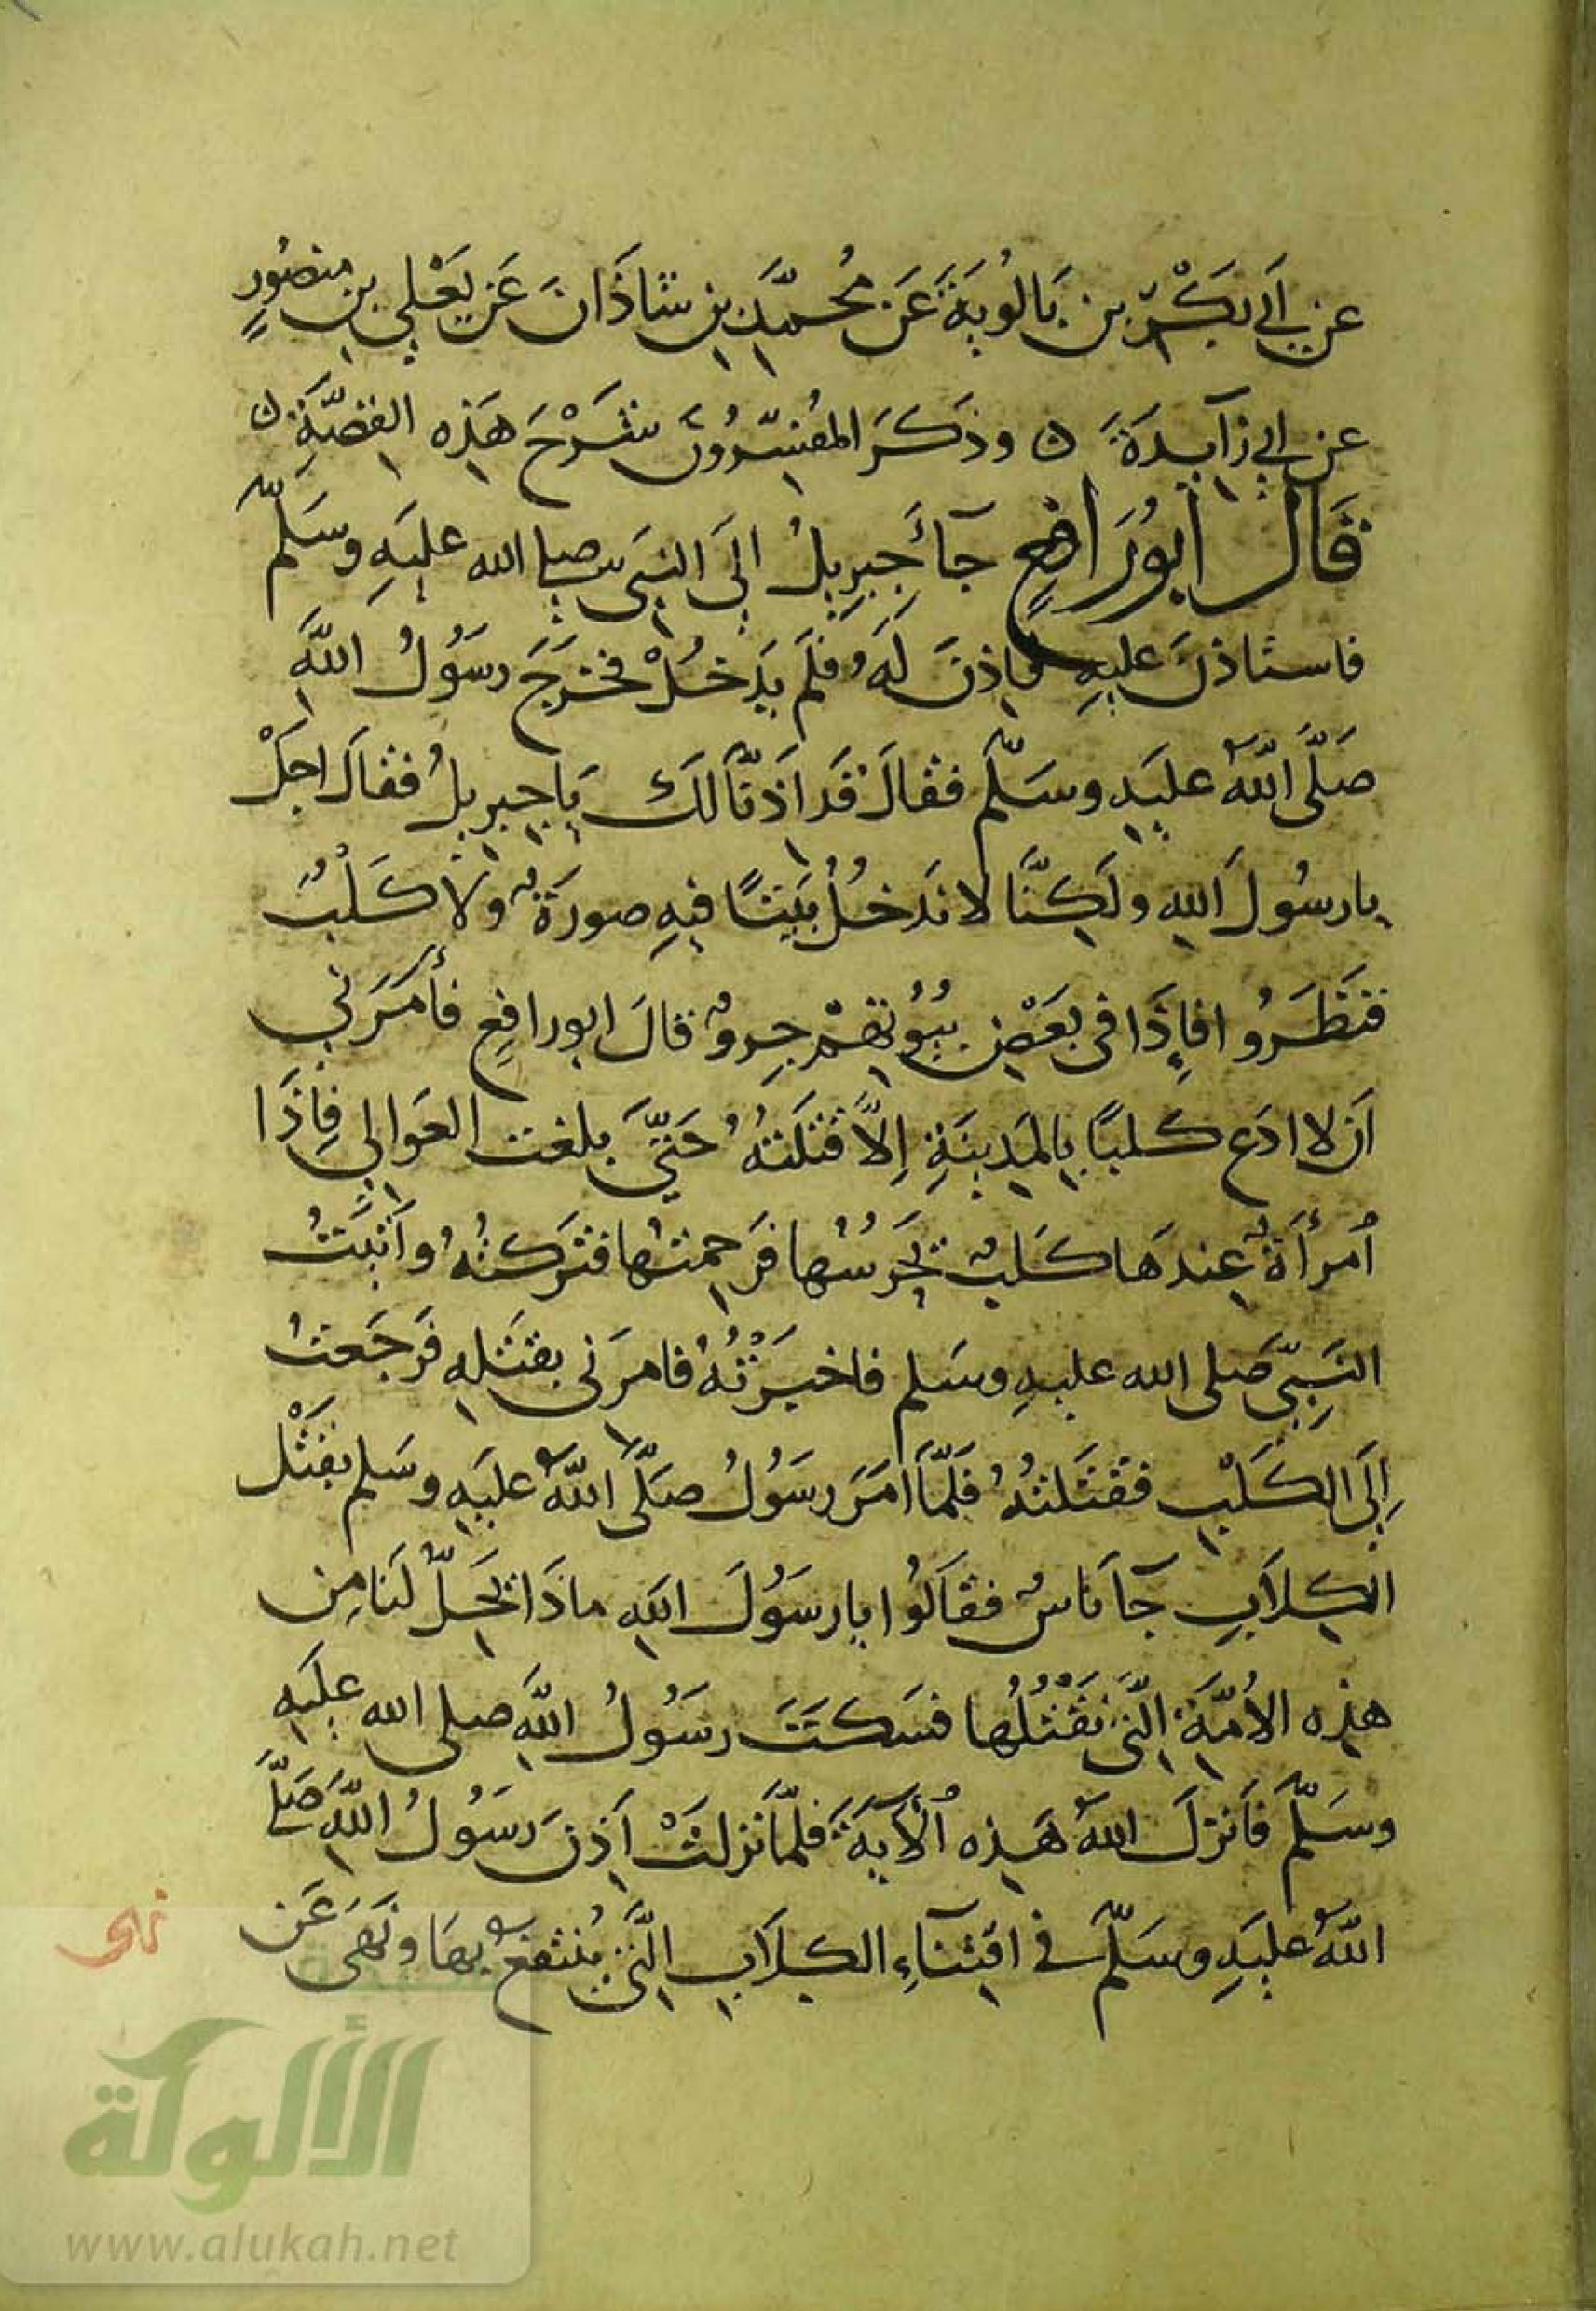 عن أَبي بَكْرِ بن بَالُويَةَ عَن مُحمَّدِ بنِ شَاذَانَ عَن يَعْلي بنِ منصُورٍ
عن ابي زآيدَةَ ه وذَكَرَ المفُسِّرُونَ شَرْحَ هَذِه القصَّةِ ه
قَالَ ابُورَافِعٍ جآءَ جِبرِيلُ إلَى النبَى صلى الله عليَهِ وسَلمّ
فاستاذنَ عليهِ فاِذنَ لَهُ فلَم يَدخُلْ فخرَجَ رسَوُلُ اللَّهِ
صَلَّى اللَّهُ عليَهِ وسَلمّ فقالَ قَد اَذنّاَ لك يَا جِبرِيلُ فقالَ اجَلْ
يا رسُولَ اللهِ ولَكِنَّا لا نَدخُلُ بَيتًا فيهِ صورَةٌ ولا كَلْبٌ
فنَظَرُوا فإِذَا فى بَعْضِ بيُوُتِهمْ جِروٌ قالَ ابورافِعٍ فأمَرَني
اَن لا ادَع كلبًا بِالمَدِينَةِ إِلاَّ قتَلتهُ حَتّىَ بلغت العَوالي فإِذَا
اُمرأَةٌ عِندهَا كلَبٌ يَحَرسُهُا فَرَحِمتُها فتَركتُهُ وأتَيتُ
النَبِيّ صَلى الله عليهِ وسَلم فاخبَرتُهُ فامرَنى بقتَلهِ فَرجَعتُ
إِلَى الكَلْبِ فقَتَلتُهُ فَلَمّاَ امَرَ رسَوُلُ صَلَّى اللَّهُ عليَهِ وسَلم بقَتْل
الكِلاَبِ جآ ناسٌ فقاَلوُا يا رسَوُلَ اللهِ ماذَا يَحَلُّ لنَا مِن
هذِه الأمَّةِ الَّتى نقَتْلُها فسَكتَتَ رسَوُلُ اللَّهِ صلى الله عليَهِ
وسَلمّ فَانزلَ اللهُ هَذِه الآيةَ فلمّاَ نزلتْ اَذِنَ رسَوُلُ اللَّهِ صَلَّى
اللَّهُ عليَهِ وسَلمّ فى اقتِنآءِ الكلاَبِ الَّتى يُنتفعُ بهَا ونَهَى عَن
نهى
الألوكة
www.alukah.net